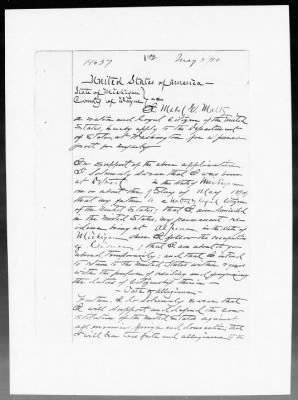 United States of America
State of Michigan
County of Wayne } ss
I Mabel
a native and loyal citizen of the United
States, hereby apply to the Department
of State, at Washington for a pass-
port for myself
In support of the above application
I solemnly swear that I was born
at Detroit in the State of Michigan
on or about the day of May
that my father is a citizen
of the United States; that I am domiciled
in the United States, my permanent res-
idence being at in the State of
Michigan, where I follow the
of ; that I am about to go
abroad temporarily; and that I intend
to return to the United States within
with the purpose of residing and performing
the duties of citizenship therein
Oath of Allegiance
Further, I do solemnly swear that
I will support and defend the Con-
stitution of the United States against
all enemies, foreign and domestic; that
I will bear true faith and allegiance to the